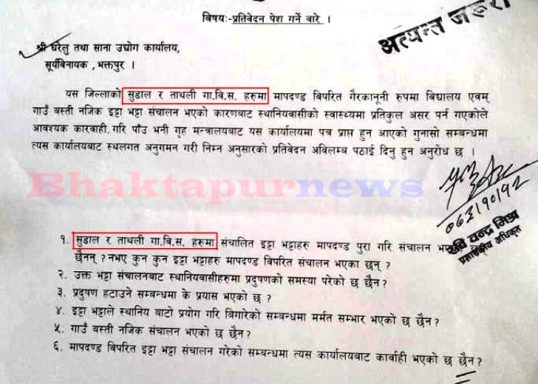 विषयः- प्रतिवेदन पेश गर्ने बारे ।
अत्यन्त जरुरी
श्री घरेलु तथा साना उद्योग कार्यालय,
सूर्यविनायक, भक्तपुर ।
यस जिल्लाको सुडाल र ताथली गा.वि.स. हरुमा मापदण्ड विपरित गैरकानूनी रुपमा विद्यालय एवम्
गाउँ बस्ती नजिक इट्टा भट्टा संचालन भएको कारणबाट स्थानियवासीको स्वास्थ्यमा प्रतिकुल असर पर्न गएकोले
आवश्यक कारवाही. गरि पाउँ भनी गृह मन्त्रालयबाट यस कार्यालयमा पत्र प्राप्त हुन आएको गुनासो सम्बन्धमा
त्यस कार्यालयबाट स्थलगत अनुगमन गरी निम्न अनुसारको प्रतिवेदन अविलम्ब पठाई दिनु हुन अनुरोध छ ।
Bhaktapurnews
०६३।१०।१२
प्रशासकीय अधिकृत
१. सुडाल र ताथली गा.वि.स. हरुमा संचालित इट्टा भट्टाहरु मापदण्ड पुरा गरि संचालन
छैनन् ? नभए कुन कुन इट्टा भट्टाहरु मापदण्ड विपरित संचालन भएका छन् ?
२. उक्त भट्टा संचालनबाट स्थानियवासीहरुमा प्रदुषणको समस्या परेको छ छैन ?
३. प्रदुषण हटाउने सम्बन्धमा के प्रयास भएको छ ?
४. इट्टा भट्टाले स्थानिय बाटो प्रयोग गरि बिगारेको सम्बन्धमा मर्मत सम्भार भएको छ छैन ?
५. गाउँ बस्ती नजिक संचालन भएको छ छैन ?
६. मापदण्ड विपरित इट्टा भट्टा संचालन गरेको सम्बन्धमा त्यस कार्यालयबाट कार्वाही भएको छ छैन ?